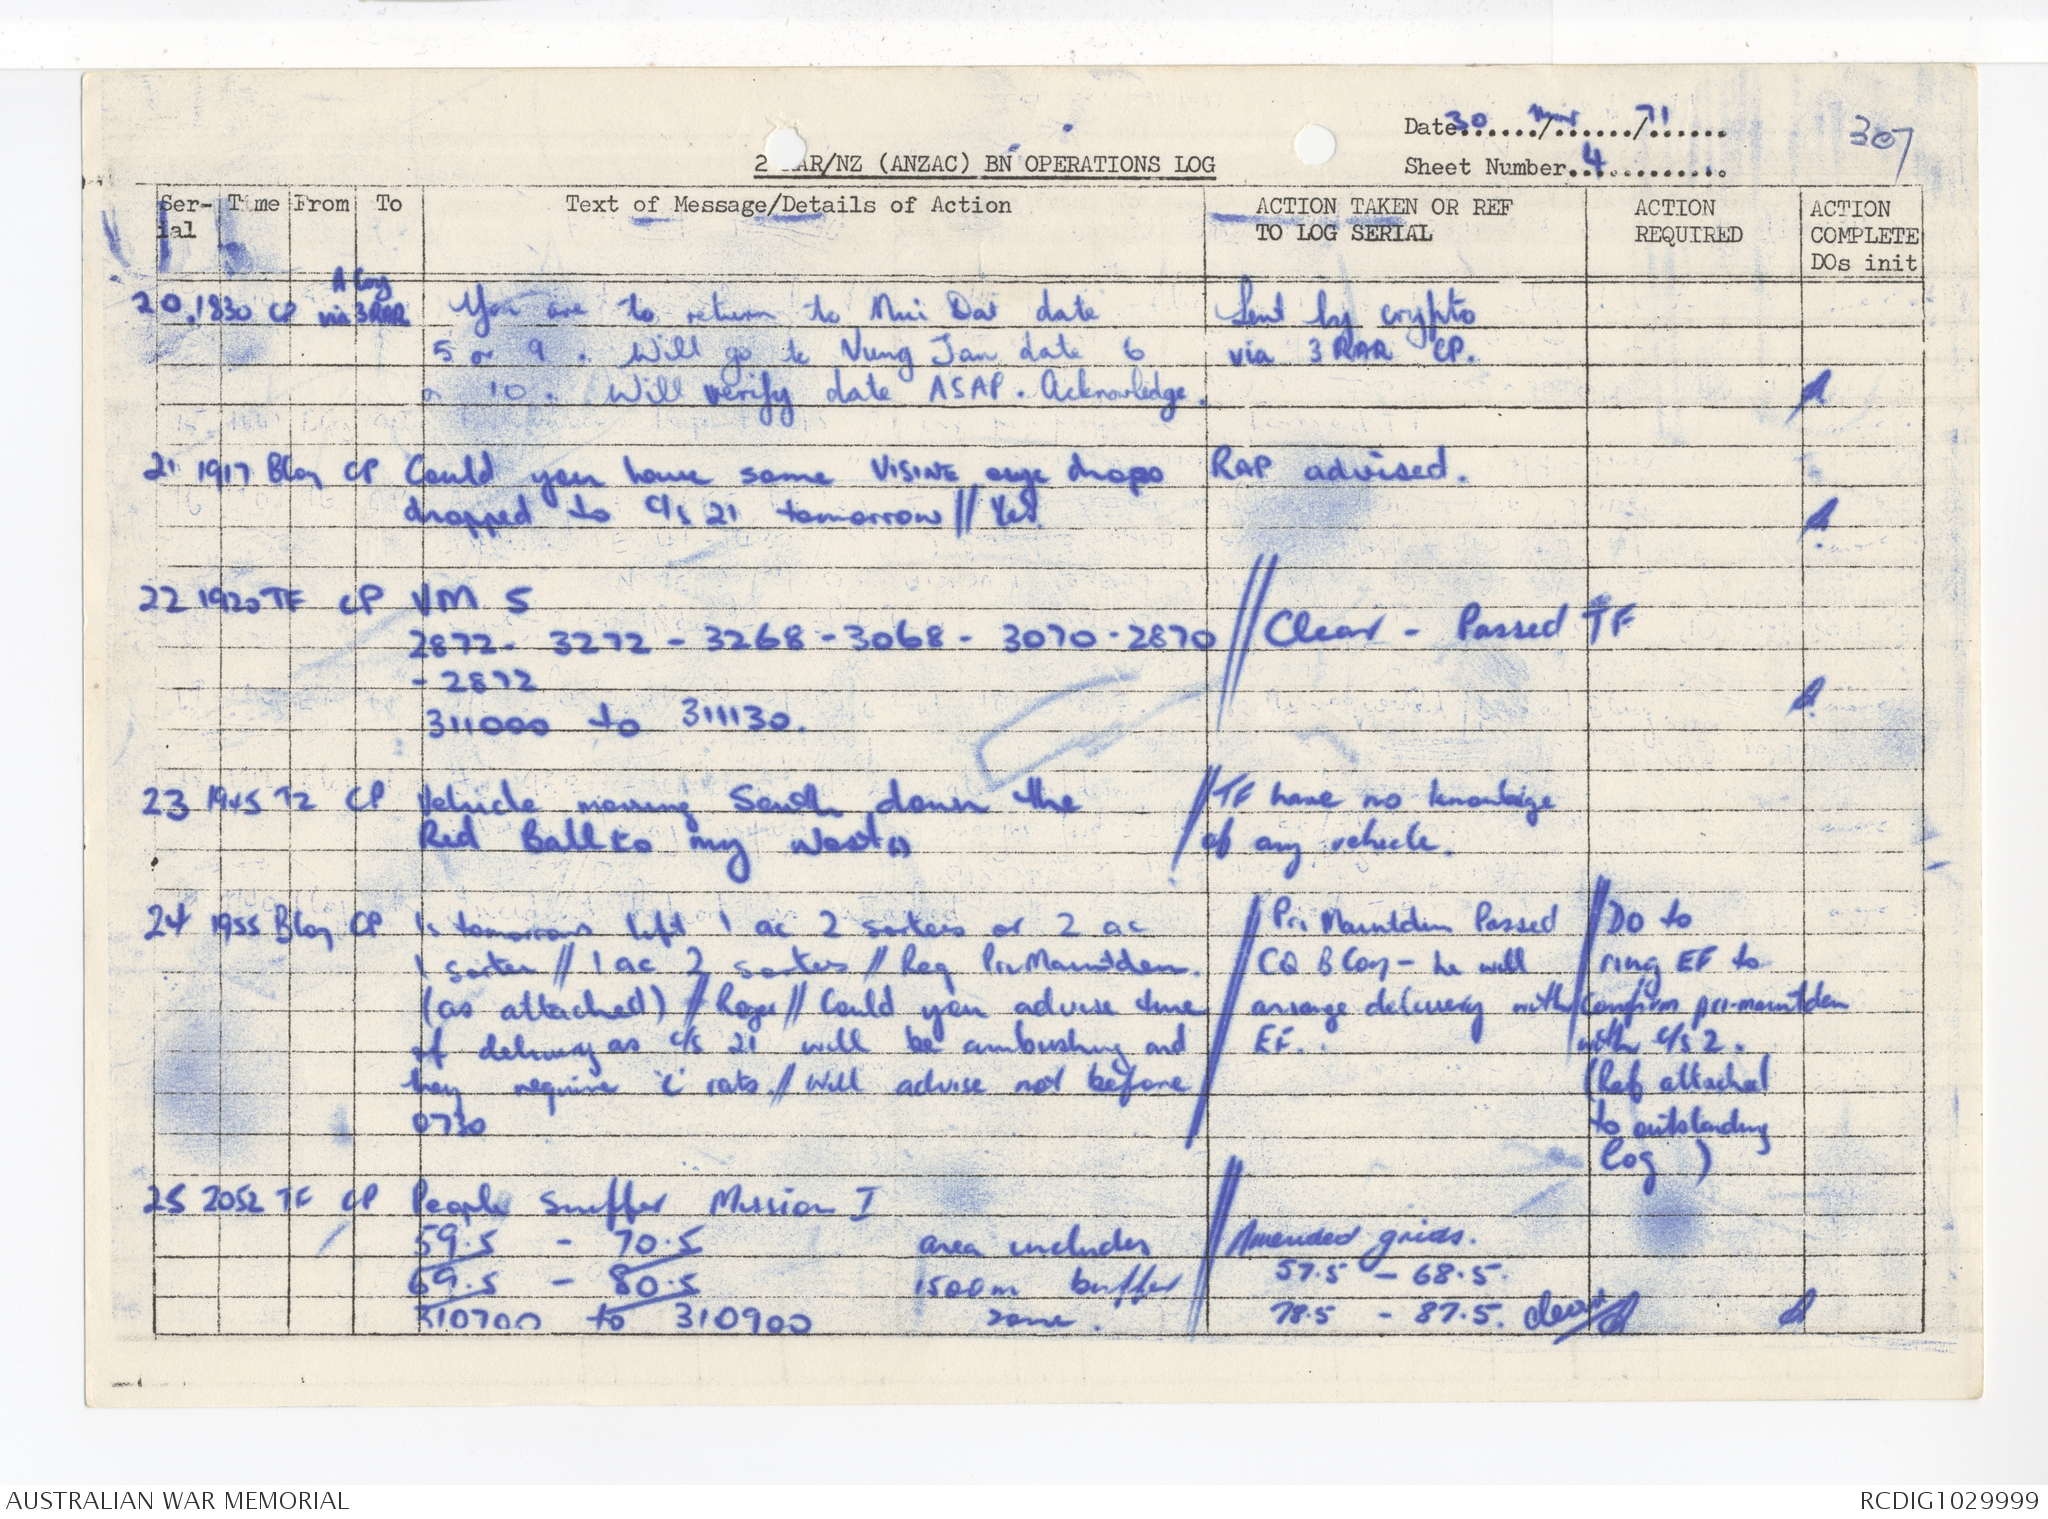 Date 30 / Mar / 71
307
2 RAR/NZ (ANZAC) BN OPERATIONS LOG
Sheet Number 4
Ser-ial Time From To Text of Message/Details of Action ACTION TAKEN OR REF TO LOG SERIAL ACTION REQUIRED ACTION COMPLETE DOs init
20. 1830 CP A Coy via 3RAR You are to return to Nui Dat date Sent by crypto
5 or 9. Will go to Vung Tau date 6 via 3 RAR CP.
or 10. Will verify date ASAP. Acknowledge.
21 1917 BCoy CP Could you have some VISINE eye drops RAP advised.
dropped to C/S 21 tomorrow // Yes.
22 1920 TF CP VM 5
2872 - 3272 - 3268 - 3068 - 3070 - 2870 // Clear - Passed TF
- 2872
311000 to 311130.
23 1945 T2 CP Vehicle moving South down the // TF have no knowledge
Red Ball to my West of any vehicle.
24 1955 BCoy CP Is tomorrows lift 1 ac 2 sorties or 2 ac // Pri Maintdem Passed // DO to
1 sortie // 1 ac 2 sorties // Req Pri Maintdem. CQ BCoy - he will ring EF to
(as attached) // Roger // Could you advise time arrange delivery with confirm pri-maintdem
of delivery as C/S 21 will be ambushing and EF. with C/S 2.
they require 'C' rats. // Will advise not before (Ref attached
0730 to outstanding
log)
25 2052 TF CP People Sniffer Mission I
59.5 - 70.5 area includes // Amended grids.
69.5 - 80.5 1500m buffer 57.5 - 68.5.
310700 to 310900 zone. 78.5 - 87.5. clear
AUSTRALIAN WAR MEMORIAL
RCDIG1029999